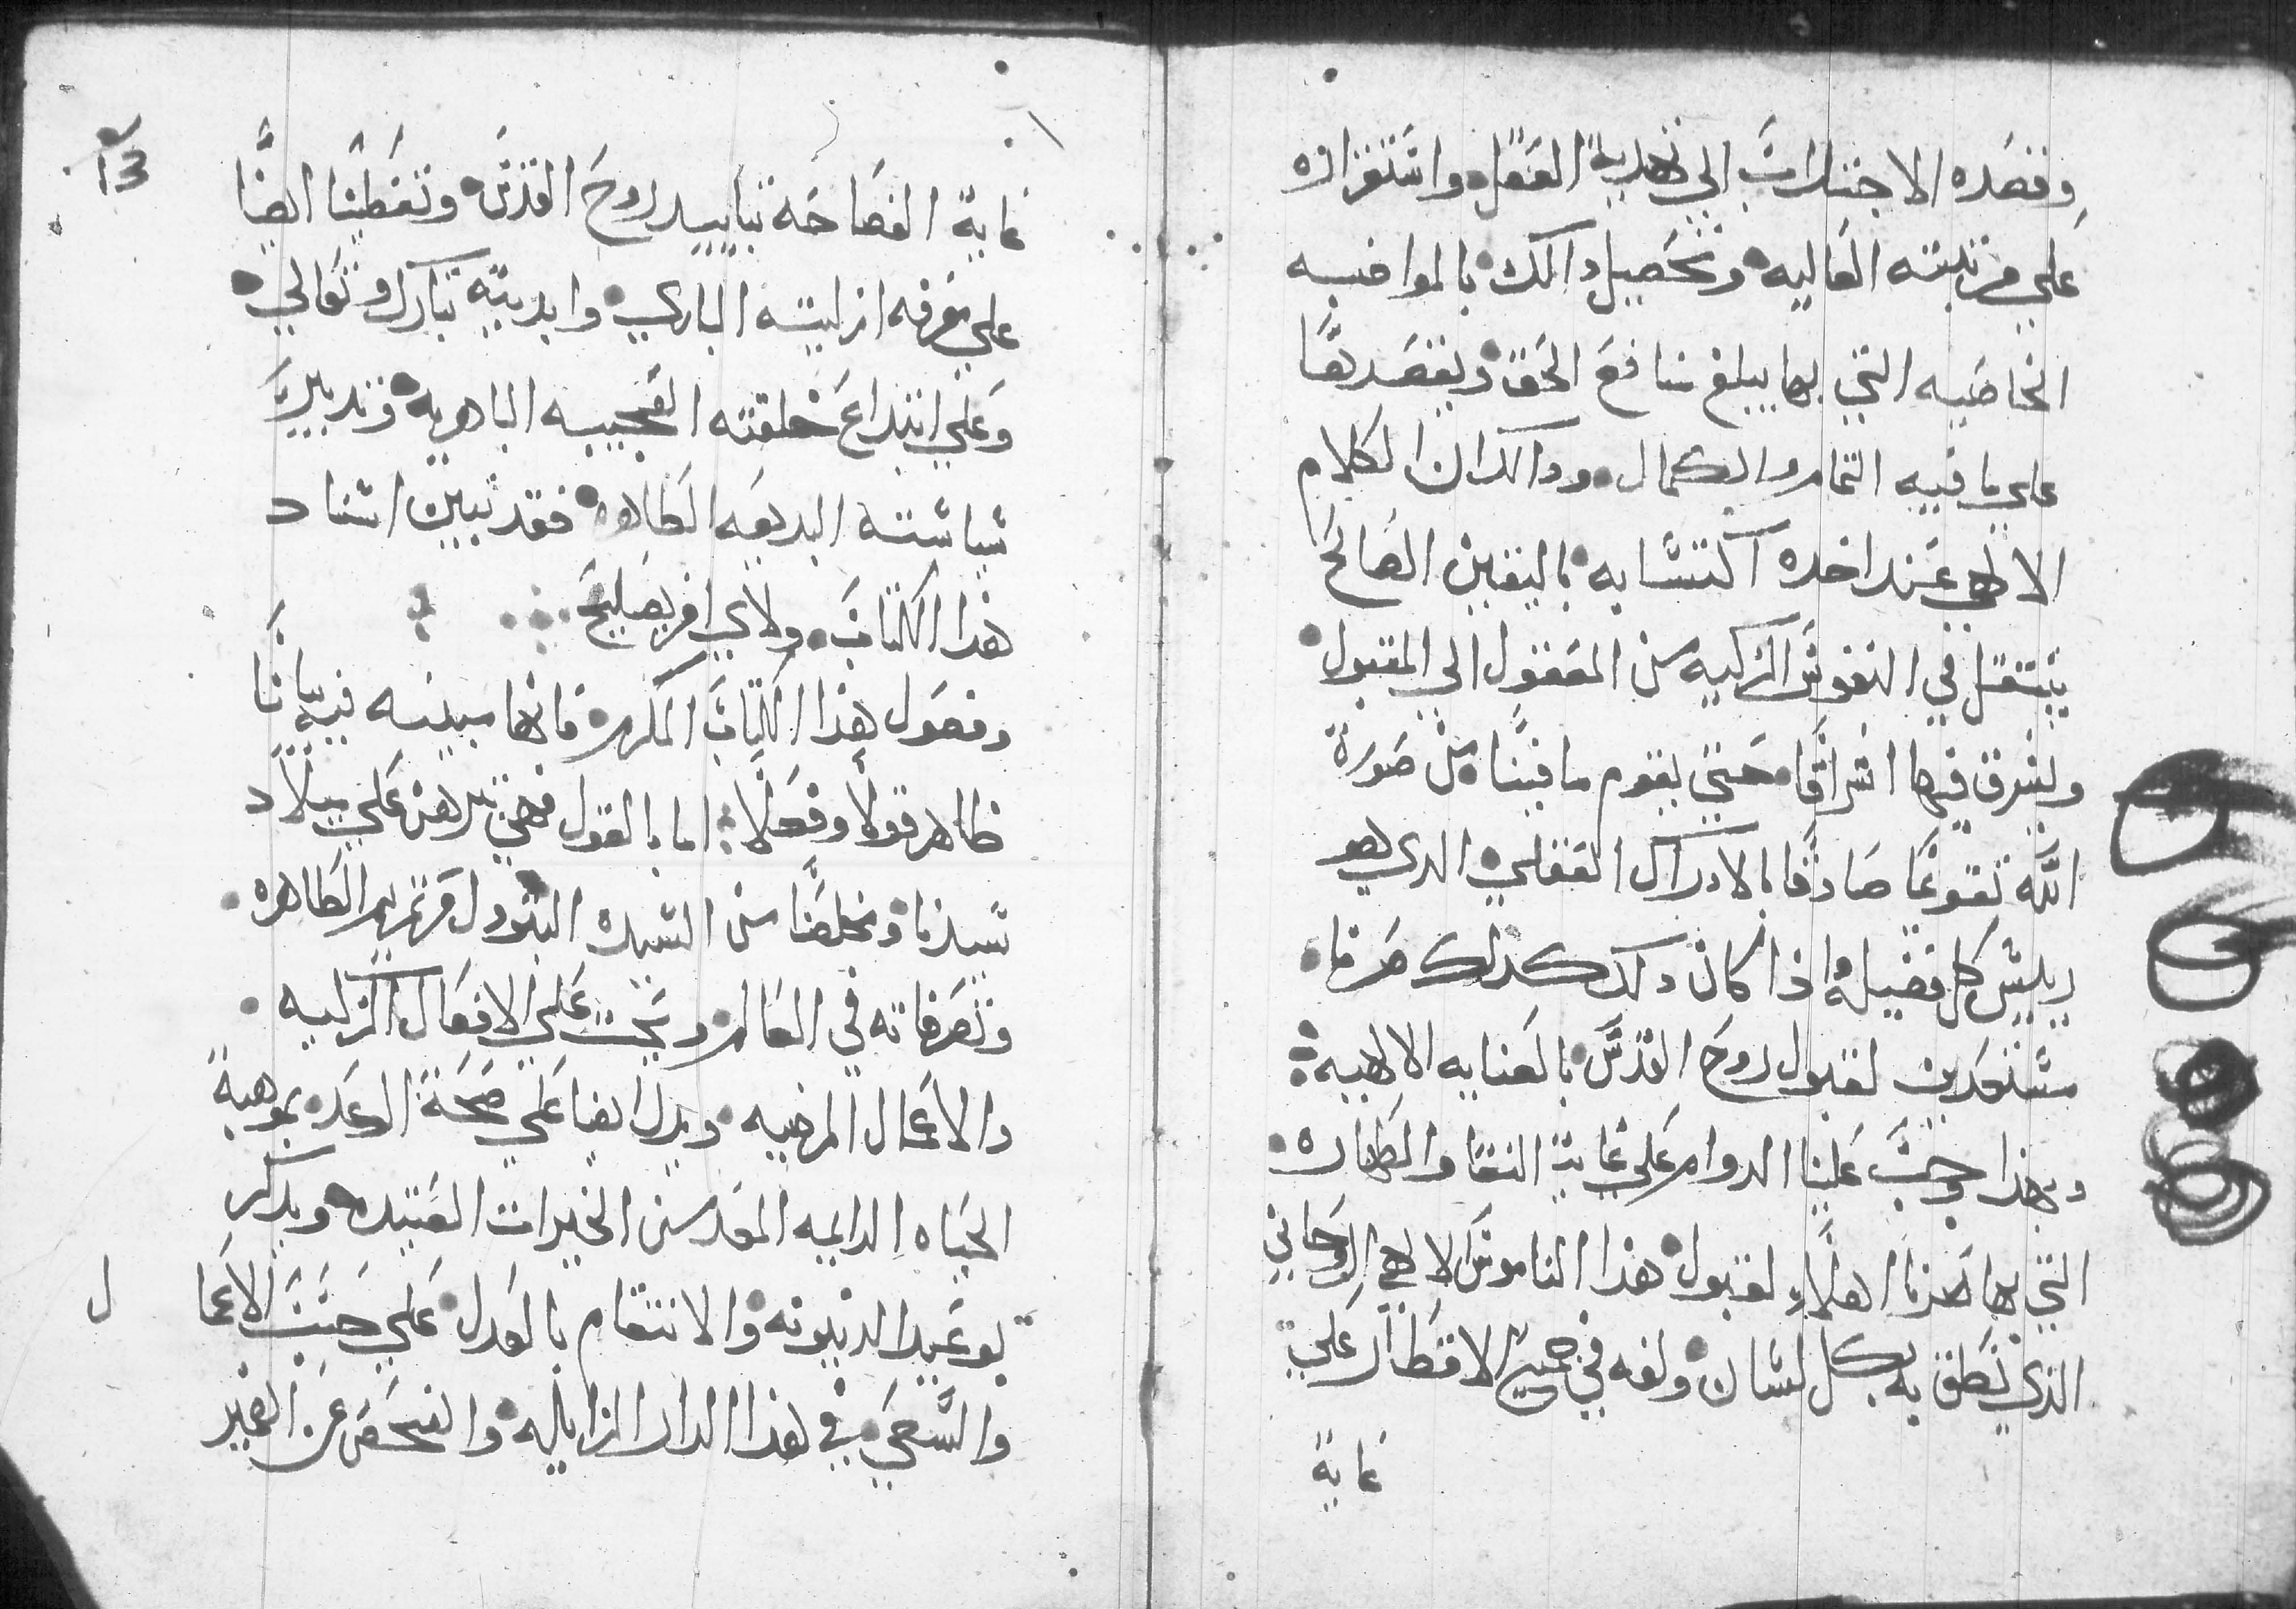 وقصده الاجتداب الي تهذيبه العقل واستقراره
علي مرتبته العاليه وتحصيل دالك بالمواهبه
الخاصيه التي بها يبلغ منافع الحق ويقصدها
علي ما فيه التمام والكمال ودالك ان الكلام
الالهي عند اخده اكتسابه باليقين الصالح
ينتقل في النفوس الزكيه من المعقول الي المقبول
ويشرق فيها اشراقا حتي يقوم ما فينا من صورة
الله تقويما صادقا بالادراك العقلي الدي هو
رييس كل فضيله واذا كان دلك كدلك صرنا
مستعدين لقبول روح القدس بالعنايه الالهيه
وبهذا وجب علينا الدوام علي غاية النقا والطهاره
التي بها صرنا اهلاء لقبول هذا الناموس الالهي الروحاني
الذي نطق به بكل لسان ولغه في جميع الاقطار علي
غاية
١٣
غاية الفصاحه بتاييد روح القدس وتعطينا ايضا
علي معرفه ازليته الباري وابديته تبارك وتعالي
وعلي ابتداع خلقته العجيبه الباهريه وتدبير
سياسته البديعه الظاهره فقد تبين اسناد
هذا الكتاب ولاي امر يصليح
وفصول هذا الكتاب المكرم فانها مبينه فيه بيانا
ظاهر قولا وفعلا اما بالقول فهي تبرهن علي ميلاد
سيدنا ومخلصنا من السيده البتول مرتمريم الطاهره
وتصرفاته في العالم وتحث علي الافعال الزليه
والاعمال المرضيه ويدل ايضا علي صحة الوعد بموهبة
الحياه الدايمه المعد من الخيرات العتيده ويدكر
بوعيد الدينونه والانتقام بالعدل علي حسب الاعما
ل
والسعي في هذا الدار الزايله والفحص عن الغير